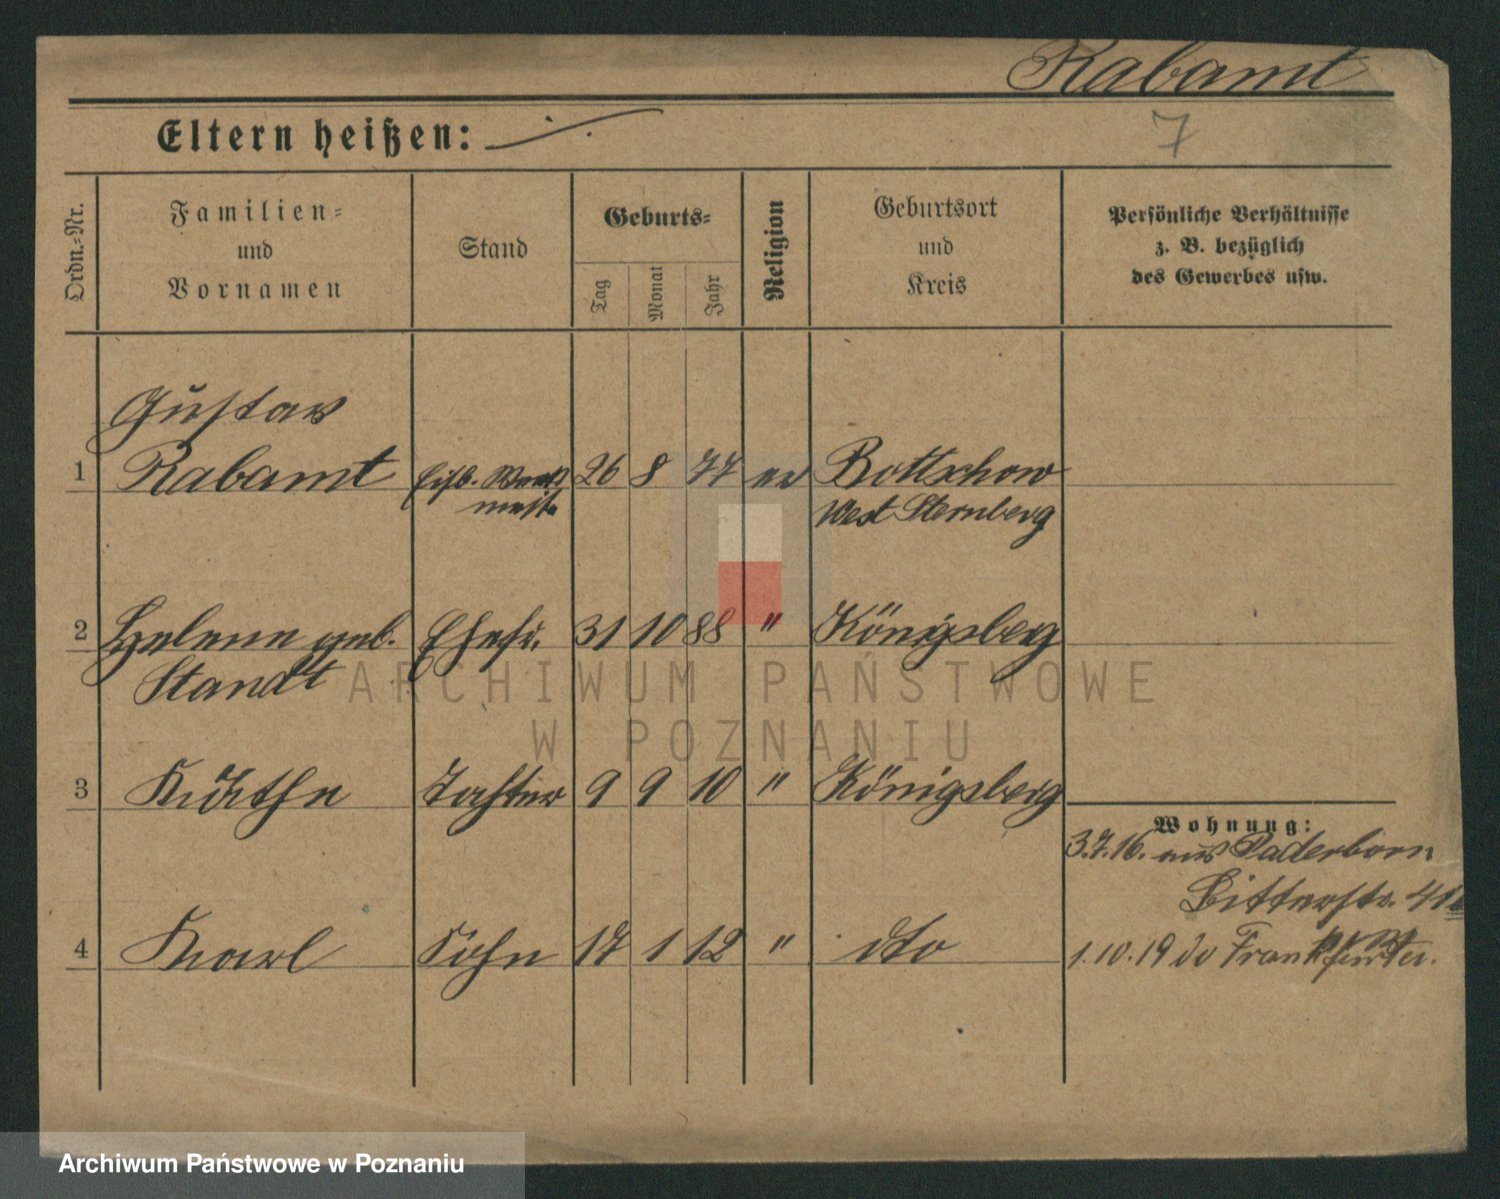 Rabamt
7
Eltern heißen: ./.
Ordn.-Nr.
Familien-
und
Vornamen
Stand
Geburts-
Tag
Monat
Jahr
Religion
Geburtsort
und
Kreis
Persönliche Verhältnisse
z. B. bezüglich
des Gewerbes usw.
Gustav
1 Rabamt Eisb. Werk 26 8 77 ev Bottschow
meist. West Sternberg
2 Helene geb. Ehefr. 31 10 88 " Königsberg
Standt
3 Käthe Tochter 9 9 10 " Königsberg
Wohnung:
3.7.16. aus Paderborn
Bitterstr. 41
4 Karl Sohn 17 1 12 " dto
1.10.19 do Frankfurter.
ARCHIWUM PAŃSTWOWE
W POZNANIU
Archiwum Państwowe w Poznaniu